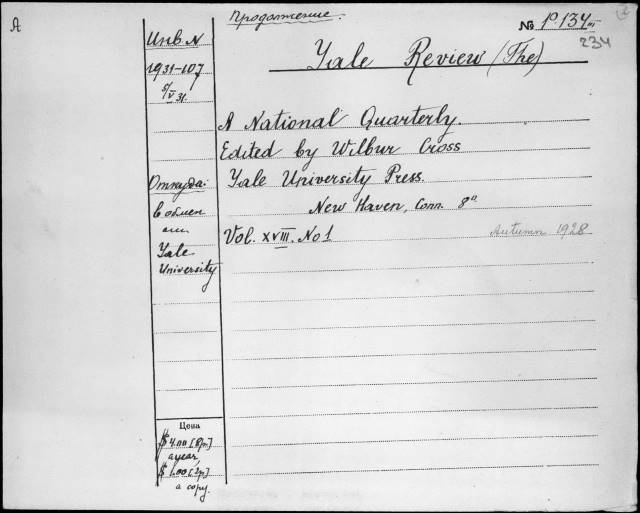 A
Продолжение.
№ P.134 III
234
Yale Review (The)
Инв. N
1931-107
5/V 31.
A National Quarterly.
Edited by Wilbur Cross
Yale University Press.
New Haven, Conn. 8°
Vol. XVIII. No 1
Autumn 1928
Откуда:
в обмен
Yale
University
Цена
$ 4.00 [8р.]
a year,
$ 1.00 [2р.]
a copy.